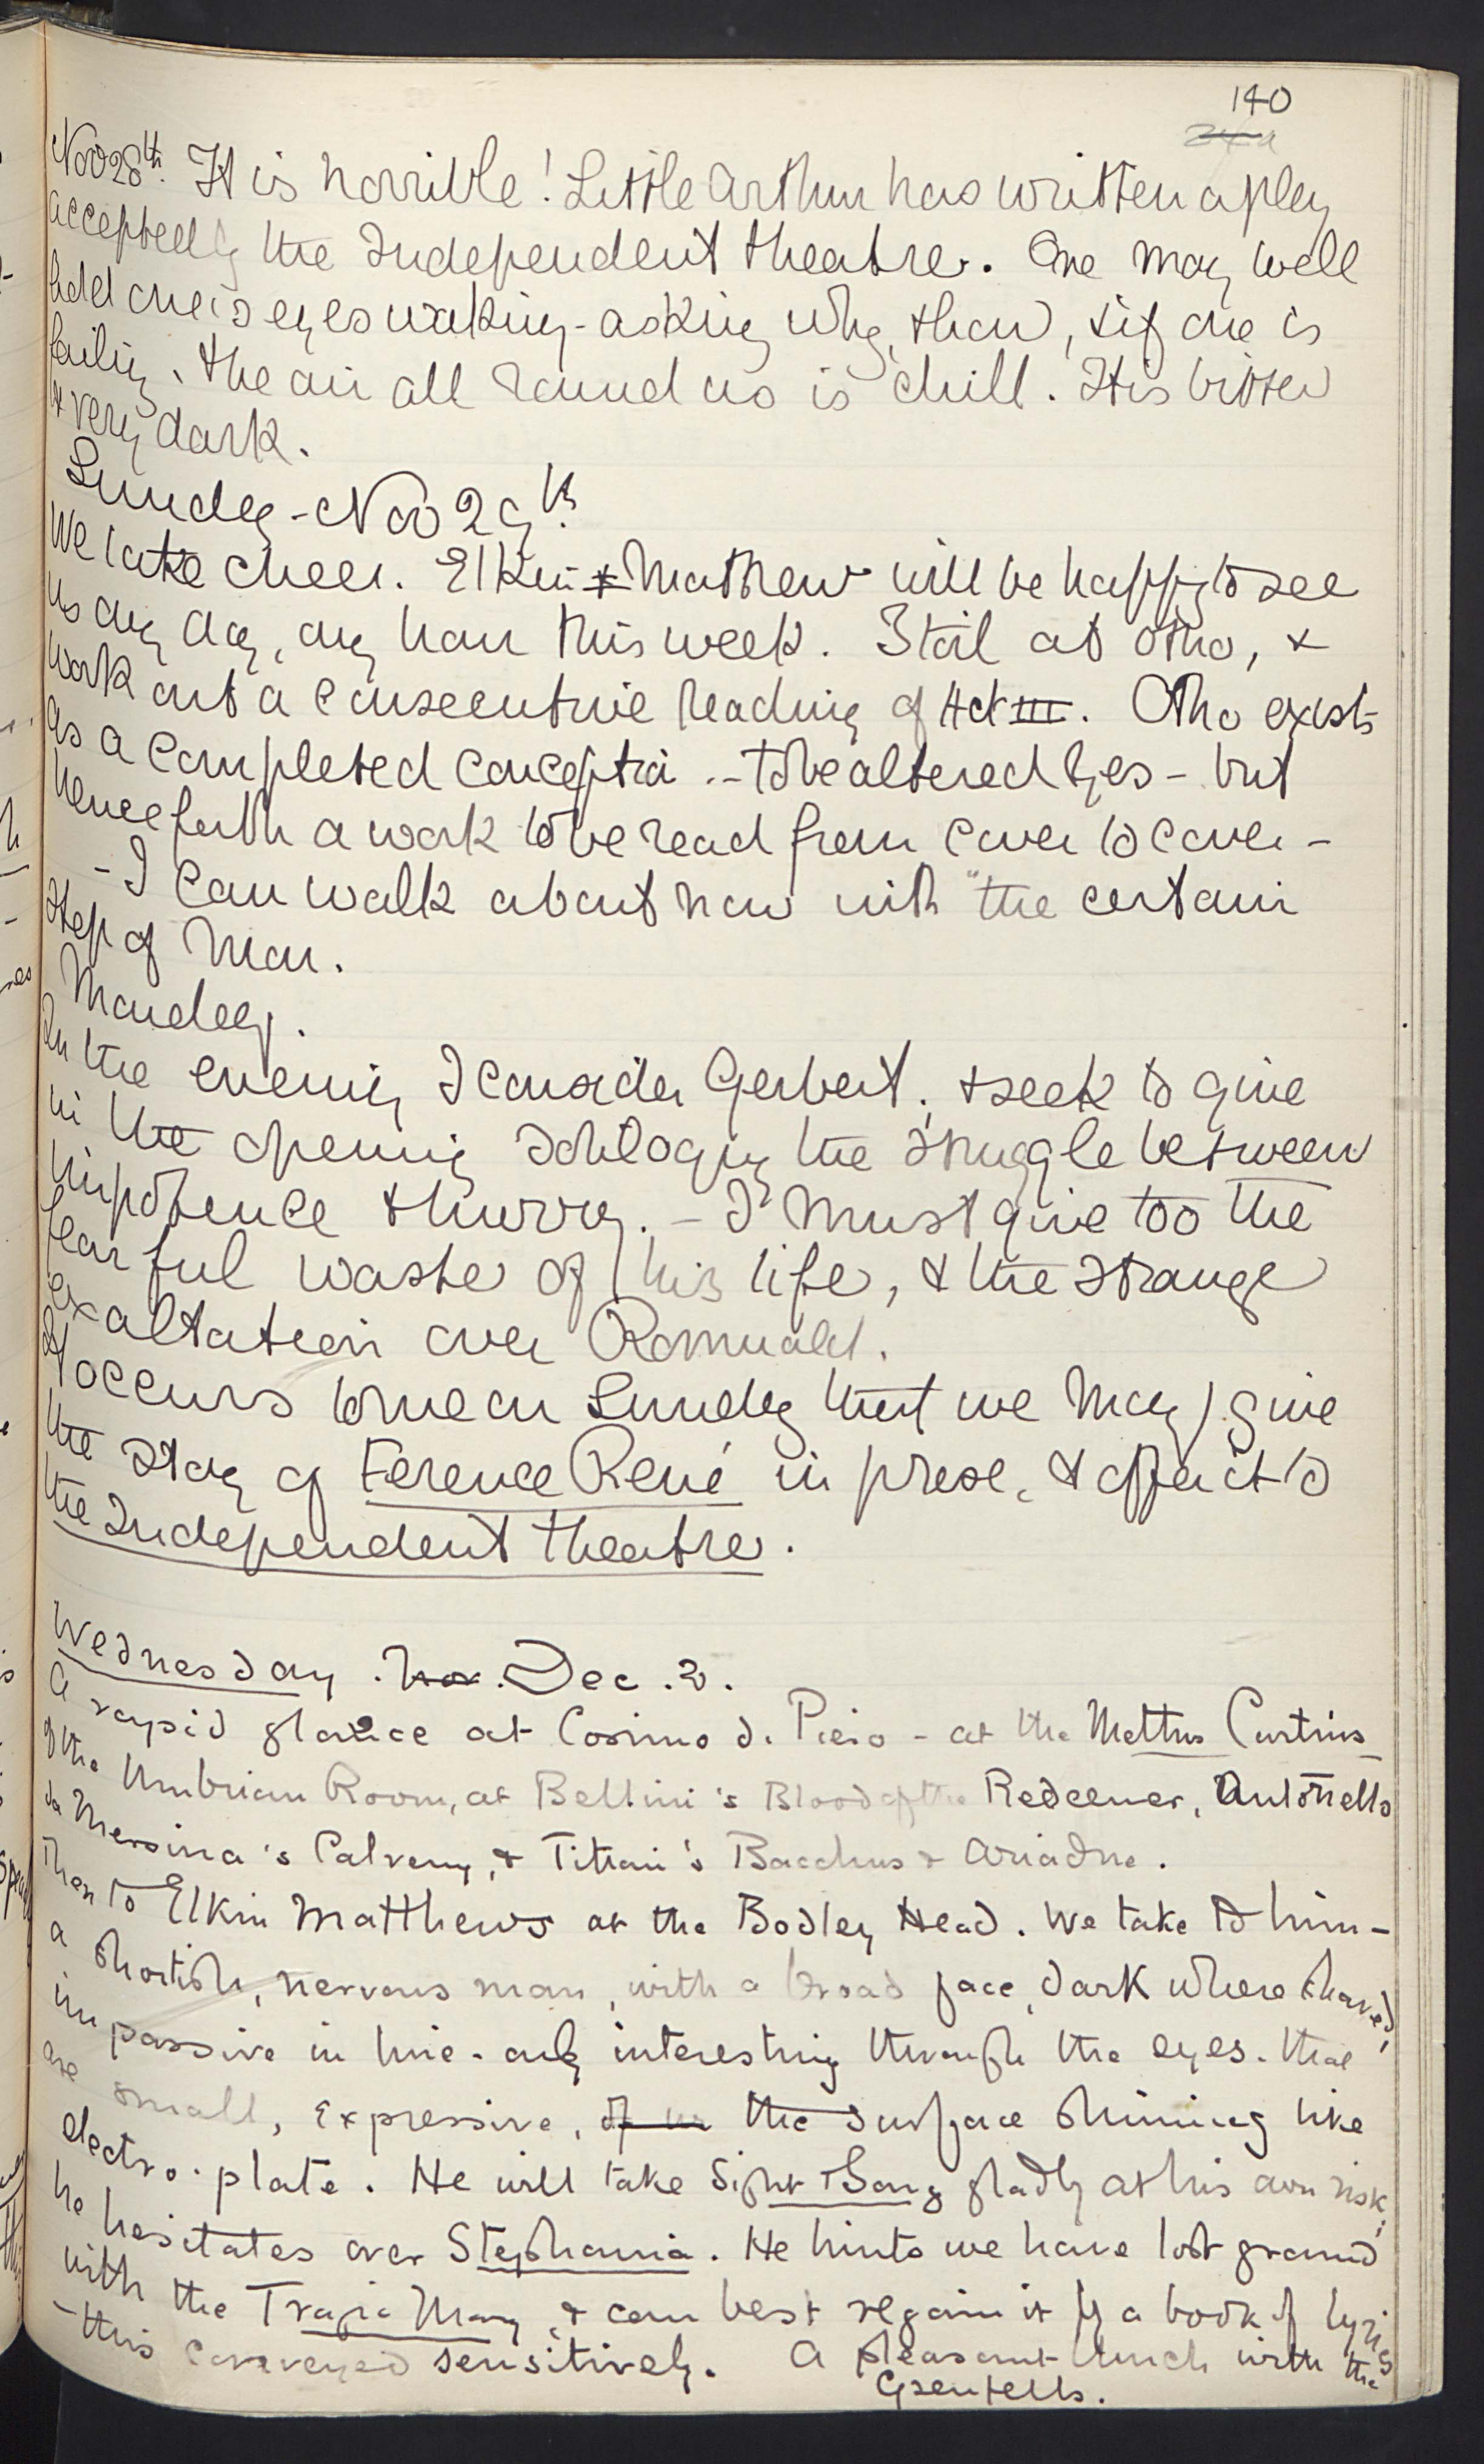 140
Nov 28th. It is horrible! Little Arthur has written a play
accepted by the Independent Theatre. One may well
hold one's eyes waking - asking why, & how, & if one is
failing, the air all round us is chill. It is bitter
& very dark.
Sunday - Nov 29th.
We take cheer. Elkin & Mathew will be happy to see
us any day, any hour this week. I toil at Otho, &
work out a consecutive reading of Act III. Otho exists
as a completed conception - to be altered yes - but
henceforth a work to be read from cover to cover -
- I can walk about now with "the certain
step of Man.
Monday.
In the evening I consider Gerbert, & seek to give
in the opening soliloquy the struggle between
impotence & hurry. - I must give too the
fearful waste of his life, & the strange
exaltation over Romuald.
It occurs to me on Sunday that we may give
the story of Ference René in prose, & offer it to
the Independent Theatre.
Wednesday. Nov. Dec. 2.
A rapid glance at Cosimo d. Piero - at the Mettus Curtius
of the Umbrian Room, at Bellini's Blood of the Redeemer, Antonello
da Messina's Calvary, & Titian's Bacchus & Ariadne.
Then to Elkin Matthews at the Bodley Head. We take to him -
a shortish, nervous man, with a broad face, dark where shaved,
impassive in line - only interesting through the eyes. that
are small, expressive, of the surface shining like
electro-plate. He will take Sight & Song gladly at his own risk;
he hesitates over Stephania. He hints we have lost ground
with the Tragic Mary, & can best regain it by a book of lyrics
- this conveyed sensitively. A pleasant lunch with the
Grenfells.